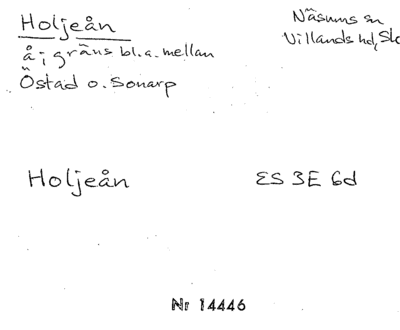 Holjeån
Näsums sn
Villands hd, Sk
å; gräns bl.a. mellan
Östad o. Sonarp
Holjeån
ES 3E 6d
Nr 14446